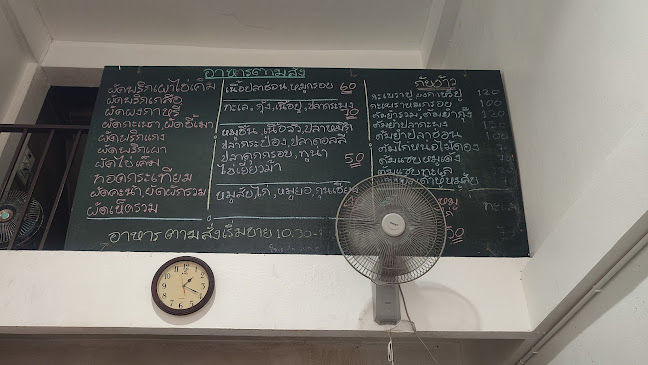 อาหารตามสั่ง
ผัดพริกเผาไข่เค็ม
ผัดพริกเกลือ
ผัดผงกะหรี่
ผัดกะเพรา, ผัดขี้เมา
ผัดพริกแกง
ผัดพริกเผา
ผัดไข่เค็ม
ทอดกระเทียม
ผัดคะน้า ผัดผักรวม
ผัดเห็ดรวม
เนื้อปลาอ่อน, หมูกรอบ 60
ทะเล, กุ้ง, เนื้อปู, ปลากะพง 70
หมูชิ้น, เนื้อวัว, ปลาหมึก
ปลากระป๋อง, ปลาดอลลี่
ปลาดุกกรอบ, ทูน่า 50
ไข่เยี่ยวม้า
หมูสับ, ไก่, หมูยอ, กุนเชียง
กับข้าว
120
กะเพราหมูกรอบ 100
ต้มยำรวม, ต้มยำกุ้ง 120
ต้มยำปลากะพง 120
ต้มยำปลาอ่อน 100
ต้มไก่หน่อไม้ดอง
ต้มแซบหมูเด้ง
ต้มแซบทะเล
หมู
50
อาหารตามสั่งเริ่มขาย 10.30-1